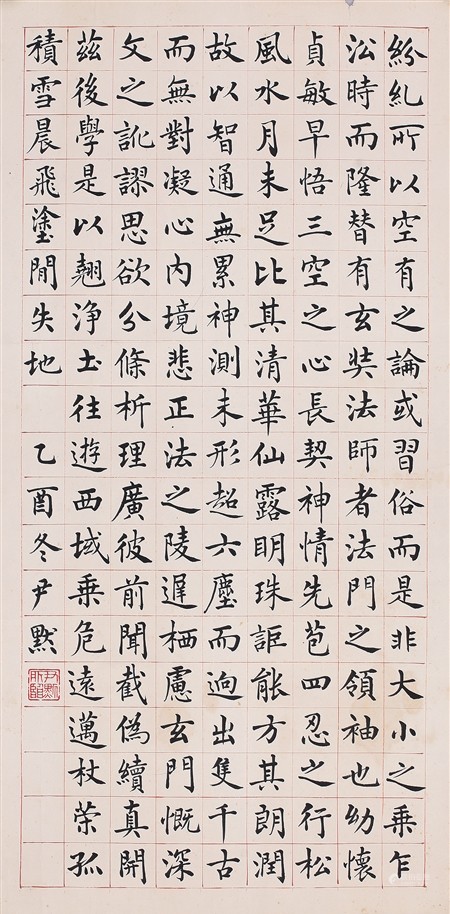 紛糺所以空有之論或習俗而是非大小之乘乍
沿時而隆替有玄奘法師者法門之領袖也幼懷
貞敏早悟三空之心長契神情先苞四忍之行松
風水月未足比其清華仙露眀珠詎能方其朗潤
故以智通無累神測未形超六塵而迥出隻千古
而無對凝心內境悲正法之陵遲栖慮玄門慨深
文之訛謬思欲分條析理廣彼前聞截偽續真開
茲後學是以翹淨土往遊西域乘危遠邁杖策孤
積雪晨飛塗閒失地 乙酉冬尹默
尹默所臨